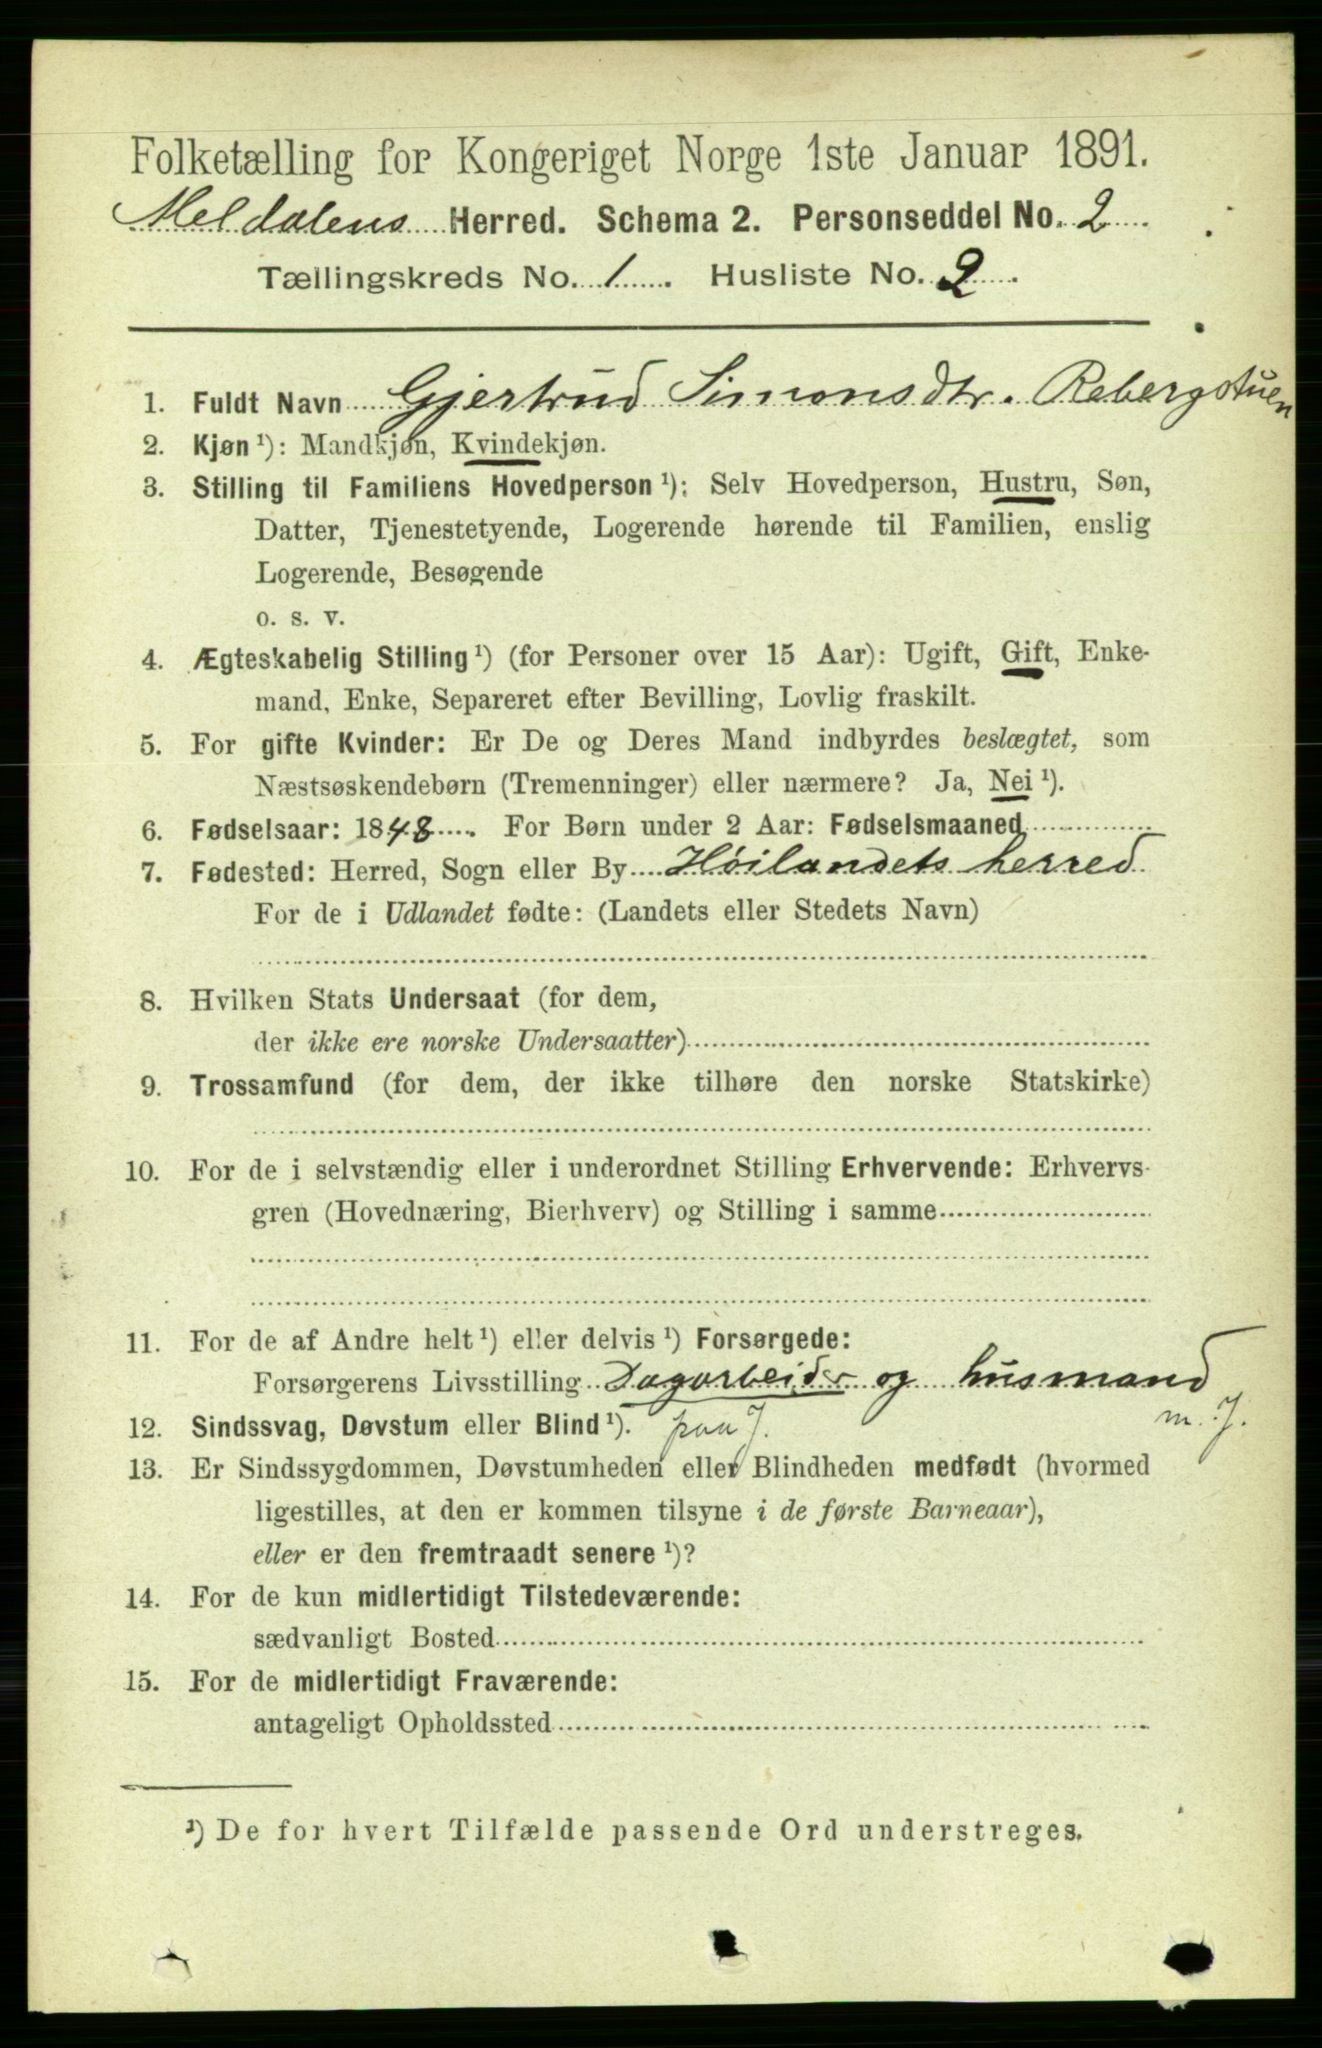 Folketælling for Kongeriget Norge 1ste Januar 1891.
Meldalens Herred. Schema 2. Personseddel No. 2
Tællingskreds No. 1. Husliste No. 2.
1. Fuldt Navn Gjertrud Simonsdtr. Rebergstuen
2. Kjøn ¹): Mandkjøn, Kvindekjøn.
3. Stilling til Familiens Hovedperson ¹): Selv Hovedperson, Hustru, Søn,
Datter, Tjenestetyende, Logerende hørende til Familien, enslig
Logerende, Besøgende
o. s. v.
4. Ægteskabelig Stilling ¹) (for Personer over 15 Aar): Ugift, Gift, Enke-
mand, Enke, Separeret efter Bevilling, Lovlig fraskilt.
5. For gifte Kvinder: Er De og Deres Mand indbyrdes beslægtet, som
Næstsøskendebørn (Tremenninger) eller nærmere? Ja, Nei ¹).
6. Fødselsaar: 1848. For Børn under 2 Aar: Fødselsmaaned
7. Fødested: Herred, Sogn eller By Høilandets herred
For de i Udlandet fødte: (Landets eller Stedets Navn)
8. Hvilken Stats Undersaat (for dem,
der ikke ere norske Undersaatter)
9. Trossamfund (for dem, der ikke tilhøre den norske Statskirke)
10. For de i selvstændig eller i underordnet Stilling Erhvervende: Erhvervs-
gren (Hovednæring, Bierhverv) og Stilling i samme
11. For de af Andre helt ¹) eller delvis ¹) Forsørgede:
Forsørgerens Livsstilling Dagarbeider og husmand
m. J.
12. Sindssvag, Døvstum eller Blind ¹). paa J.
13. Er Sindssygdommen, Døvstumheden eller Blindheden medfødt (hvormed
ligestilles, at den er kommen tilsyne i de første Barneaar),
eller er den fremtraadt senere ¹)?
14. For de kun midlertidigt Tilstedeværende:
sædvanligt Bosted
15. For de midlertidigt Fraværende:
antageligt Opholdssted
¹) De for hvert Tilfælde passende Ord understreges.